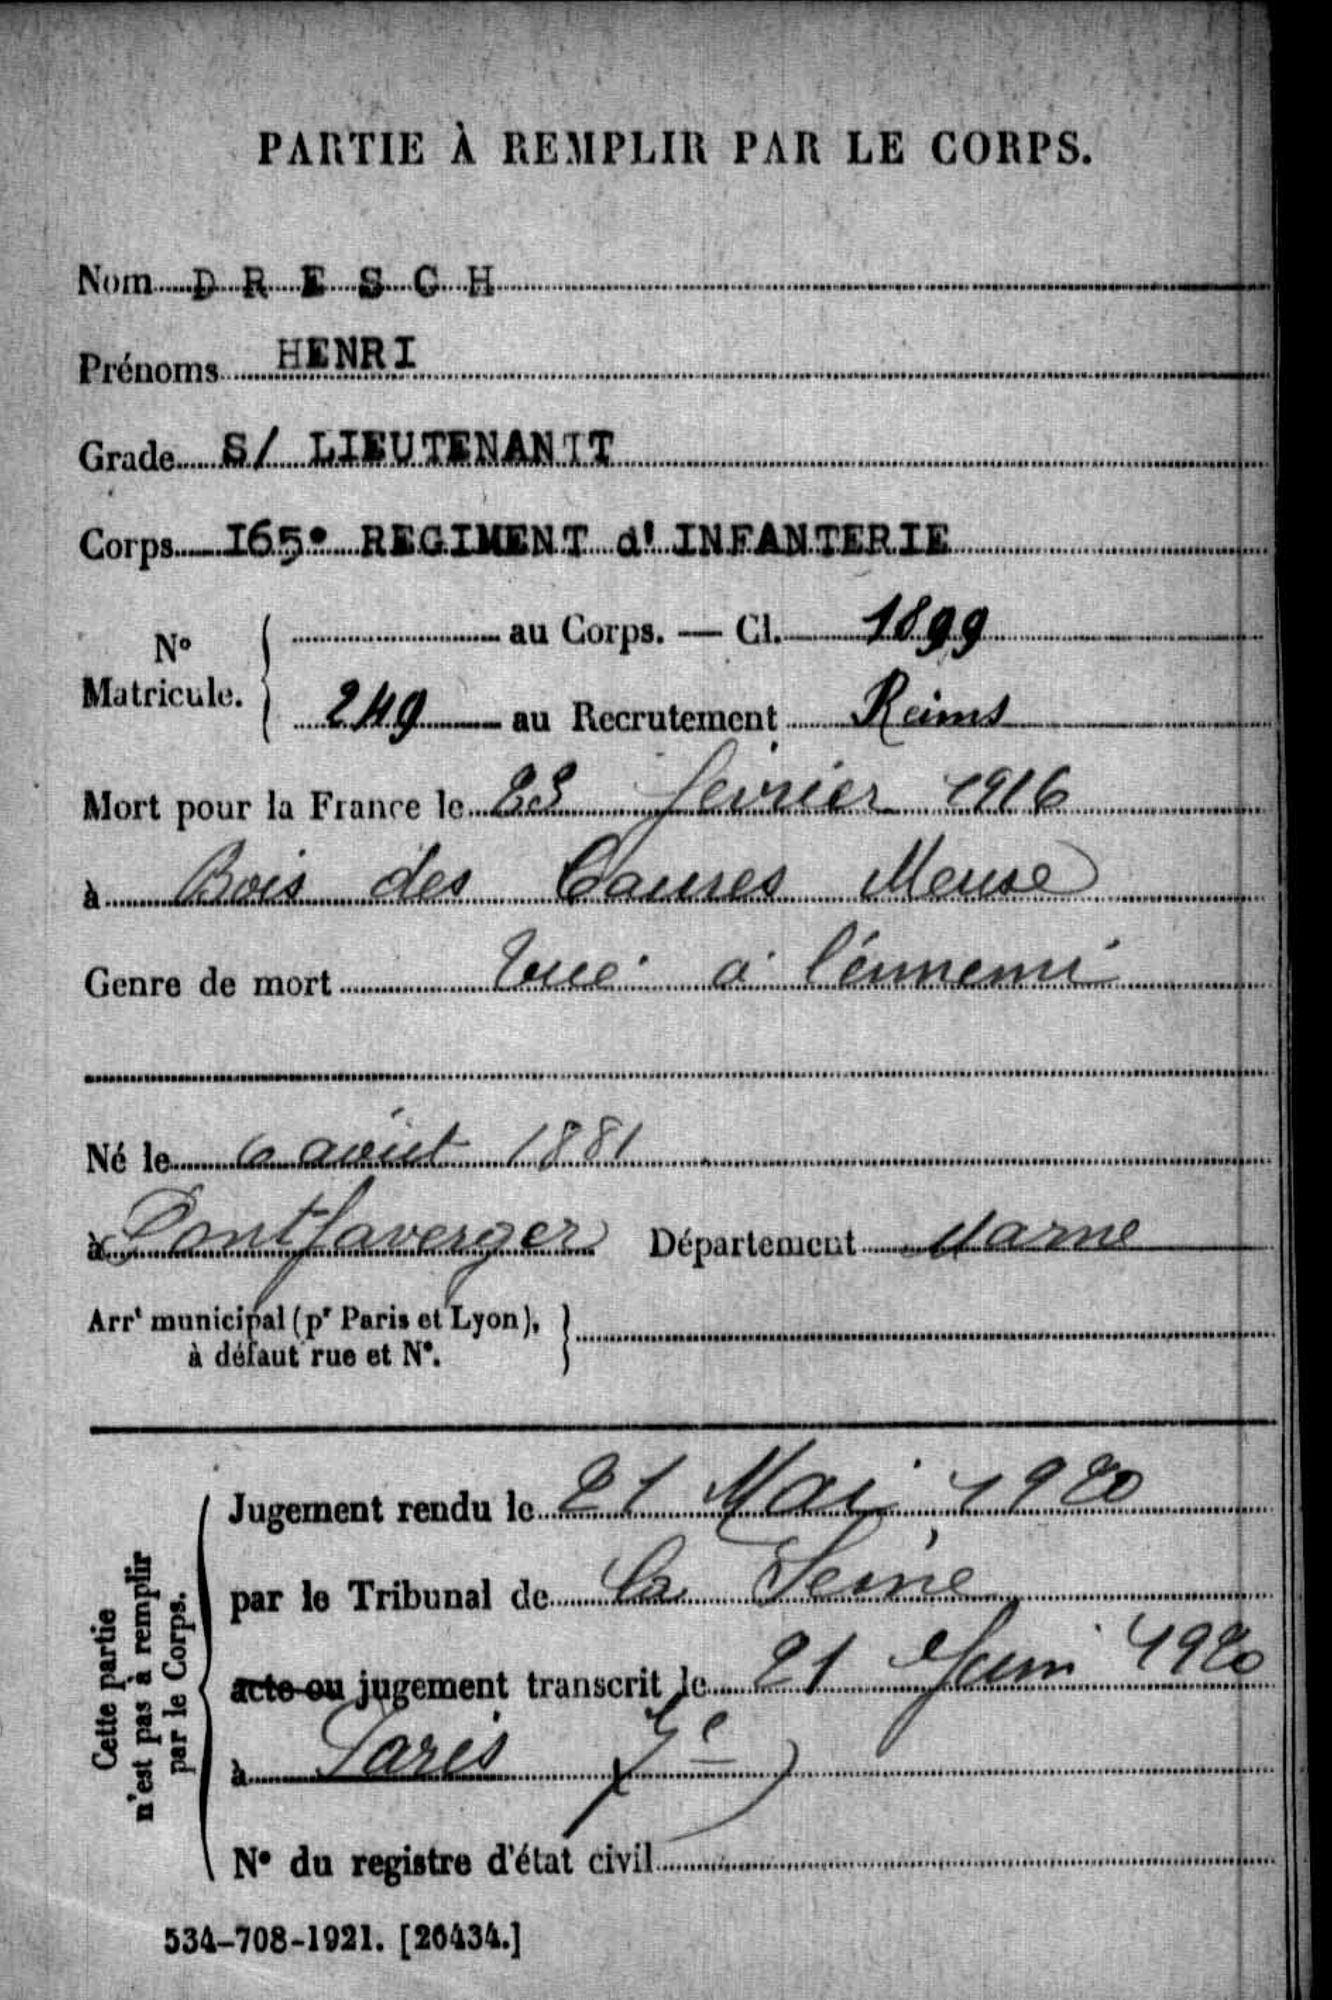 PARTIE À REMPLIR PAR LE CORPS.
Nom D R E S C H
Prénoms HENRI
Grade S/ LIEUTENANTT
Corps I65° REGIMENT d' INFANTERIE
N° Matricule. au Corps. — Cl. 1899
249 au Recrutement Reims
Mort pour la France le février 1916
à Bois des Caures Meuse
Genre de mort Tué à l'énnemi
Né le 6 août 1881
à Pontfaverger Département Marne
Arrt municipal (pr Paris et Lyon),
à défaut rue et N°.
Cette partie
n'est pas à remplir
par le Corps.
Jugement rendu le 21 Mai 1920
par le Tribunal de la Seine
acte ou jugement transcrit le 21 Juin 1920
à Paris
N° du registre d'état civil
534-708-1921. [26434.]